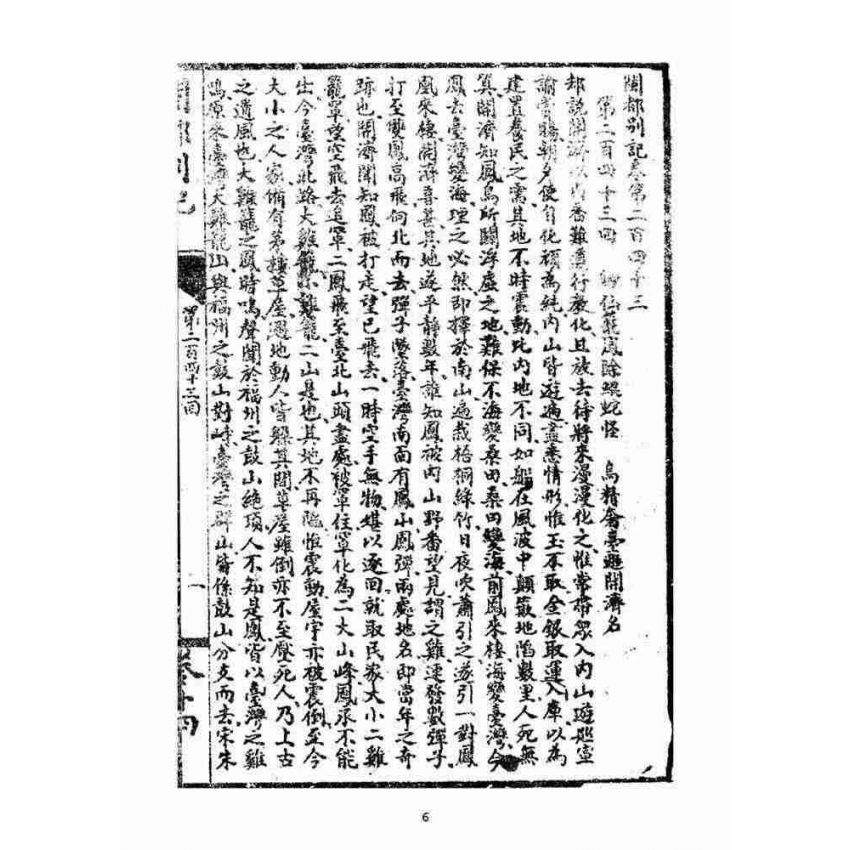 閩都別記卷第二百四十三
第二百四十三回 仙龍鳳除蜈蚣怪 烏精魯臺題開濟名
却說開濟以內番難盡行教化且放去待將來漫漫化之惟常帶眾入內山遊巡宣
諭賞賜朝夕使自化頑為純內山皆遊遍盡悉情形惟玉不取金銀取運入庫以為
建置養民之需其地不時震動比內地不同如船在風波中顛簸地陷數里人死無
算開濟知鳳鳥所關浮虛之地難保不海變桑田桑田變海前鳳來棲海變臺灣今
鳳去臺灣變海理之必然即擇於南山遍栽梧桐綠竹日夜吹蕭引之遂引一對鳳
凰來棲開濟喜甚其地遂平靜數年誰知鳳被內山野番望見謂之雞連發數彈子
打至雙鳳高飛向北而去彈子墜落臺灣南面有鳳山鳳彈兩處地名即當年之奇
跡也開濟聞知鳳被打走望已飛去一時空手無物堪以逐回就取民家大小二雞
籠罩望空飛去追罩二鳳飛至臺北山頭盡處被罩住罩化為二大山峰鳳永不能
出今臺灣北路大雞籠小雞籠二山是也其地不再陷惟震動屋宇亦被震倒至今
大小之人家備有茅草屋遇地動人皆躲其間草屋雖倒亦不至壓死人乃上古
之遺風也大雞籠之鳳時鳴聲聞於福州之鼓山絕頂人不知是鳳皆以臺灣之雞
鳴原來臺灣大雞籠山與福州之鼓山對峙臺灣之群山皆係鼓山分支而去宋朱
第二百四十三回
一
6